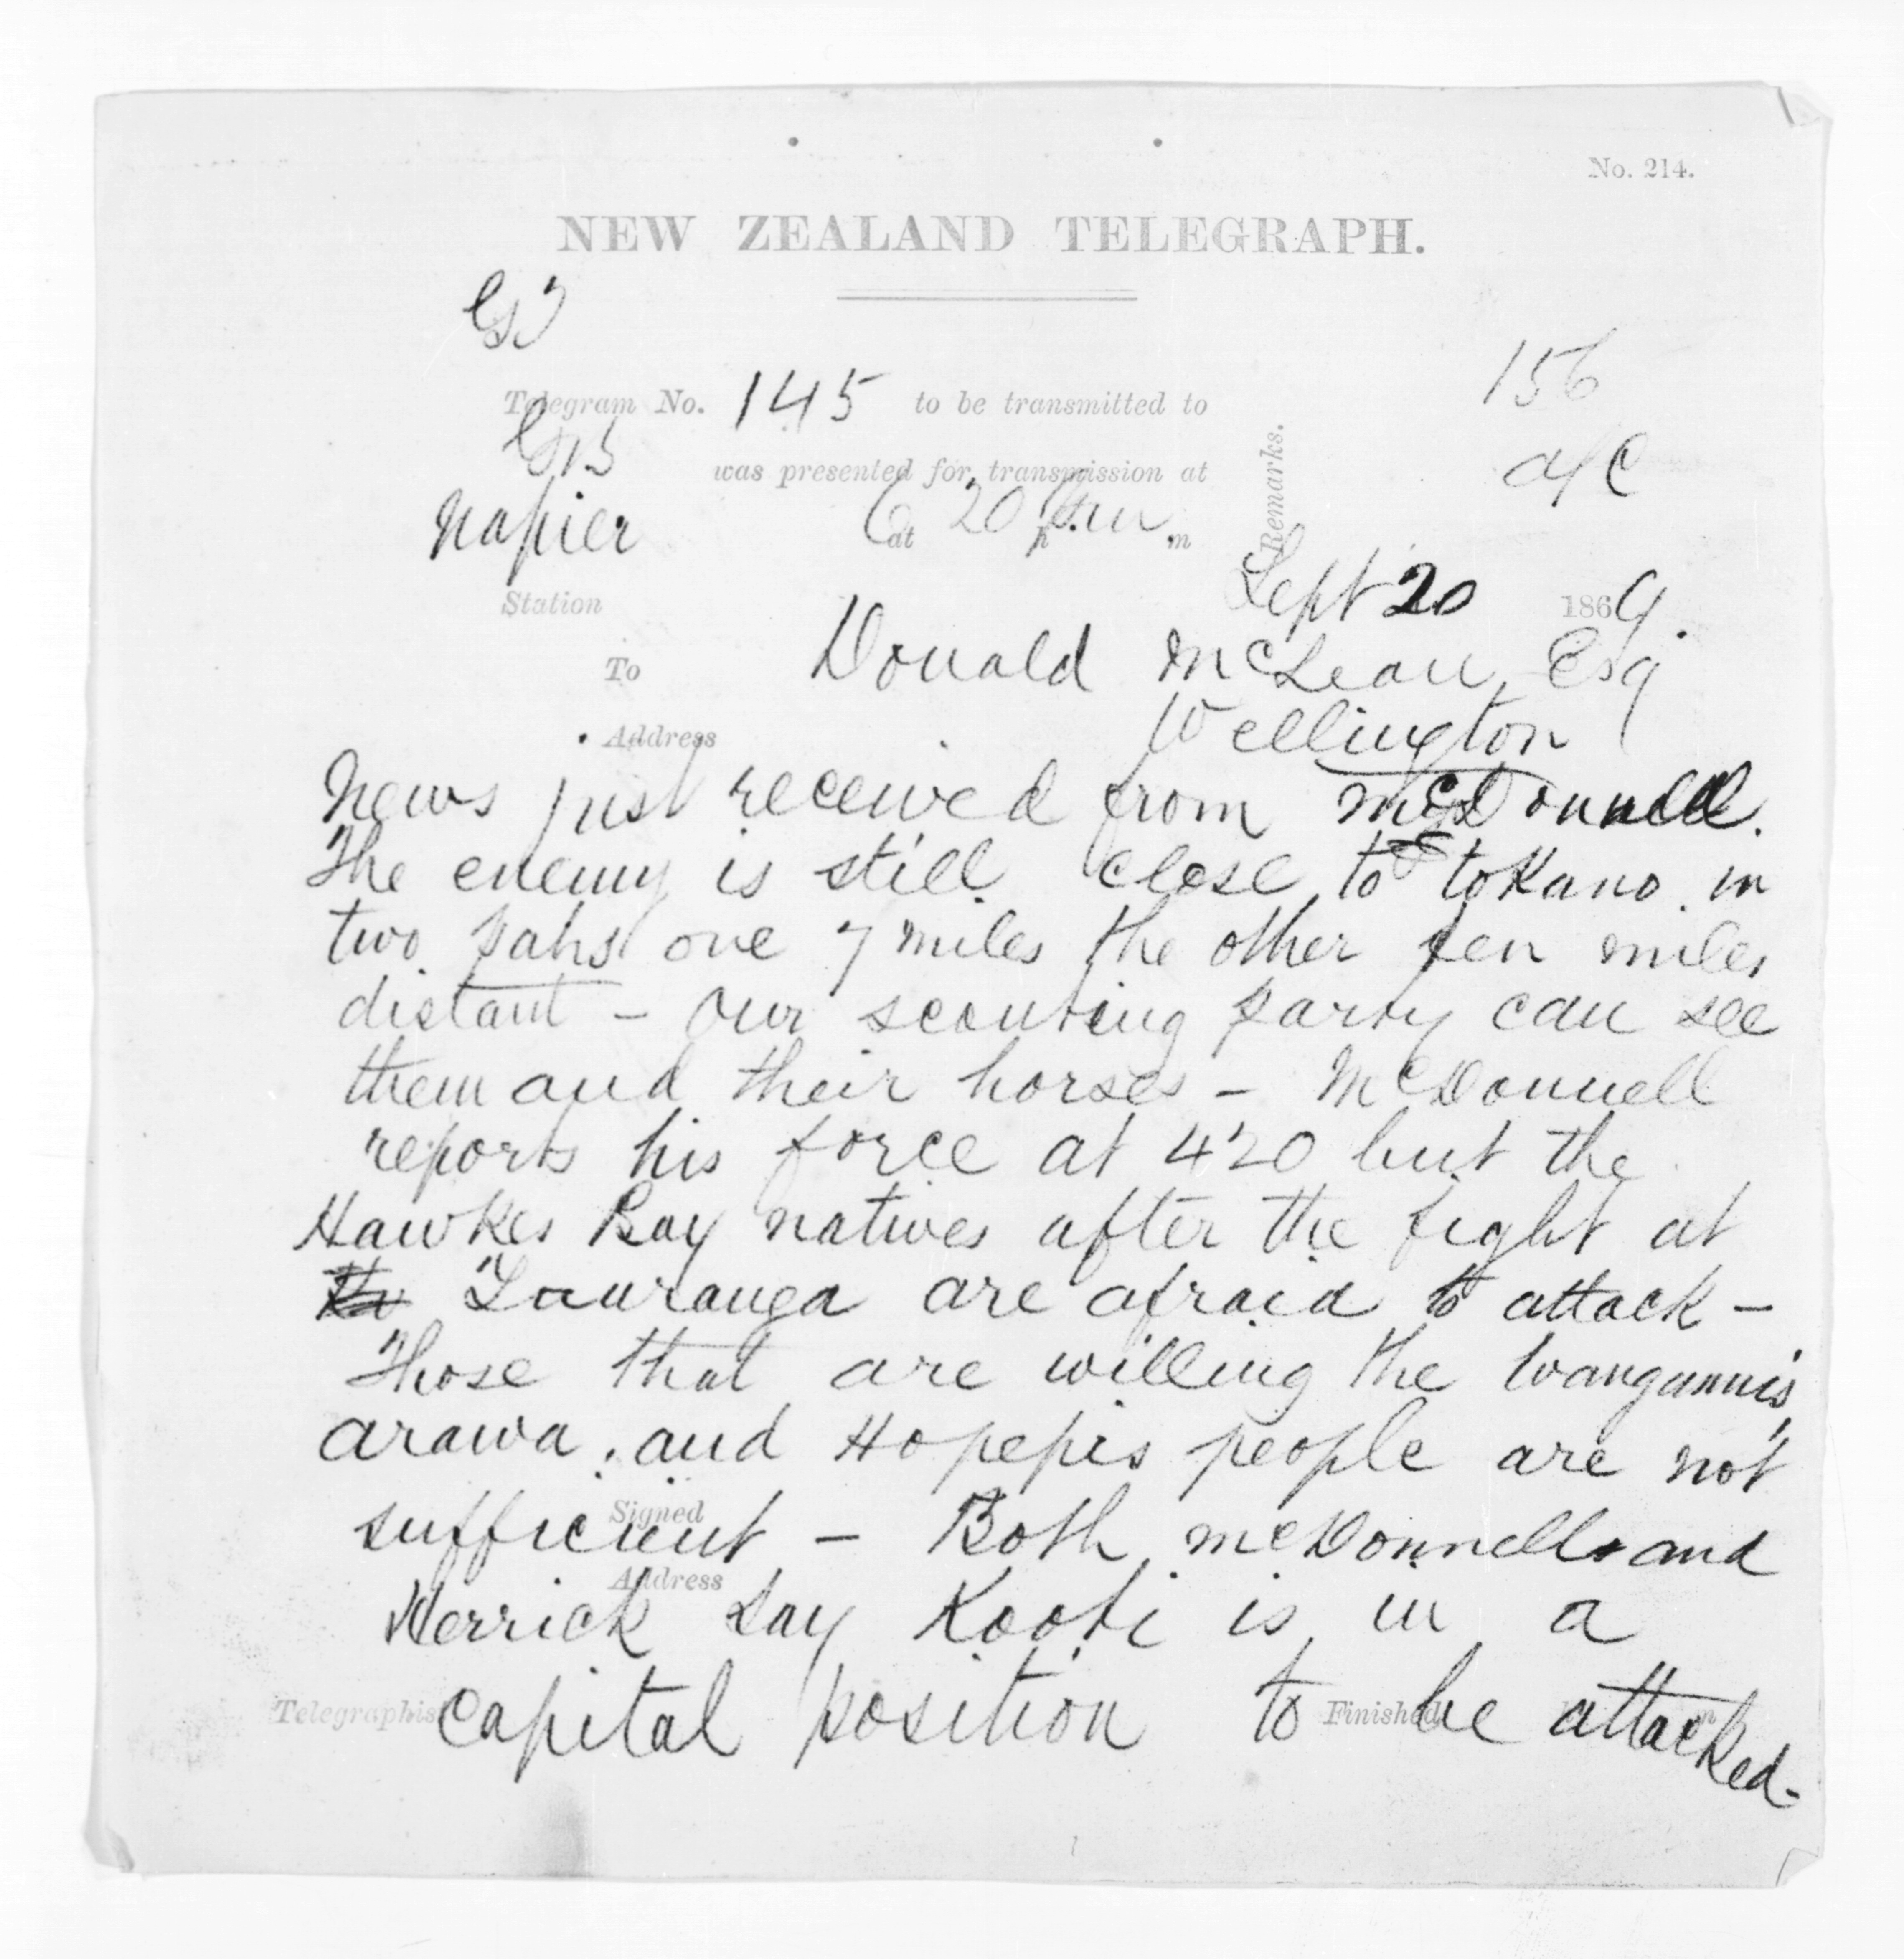 No. 214.
NEW ZEALAND TELEGRAPH.
156
Telegram No. 145 to be transmitted to
a/c
was presented for transmission at
Remarks.
Napier 6 20 pm
at h m
Sept 20 1869.
Station
To Donald McLean Esq
Address Wellington
News just received from McDonnell.
The enemy is still close to tokano in
two pahs one 7 miles the other ten miles
distant - Our scouting party can see
them and their horses - McDonnell
reports his force at 420 but the
Hawkes Bay natives after the fight at
Tauranga are afraid to attack -
Those that are willing the Wanganuis
arawa, and Hopepis people are not
Signed
sufficient - Both McDonnell and
Address
Herrick say Kooti is in a
Telegraphist capital position to Finished be attacked.